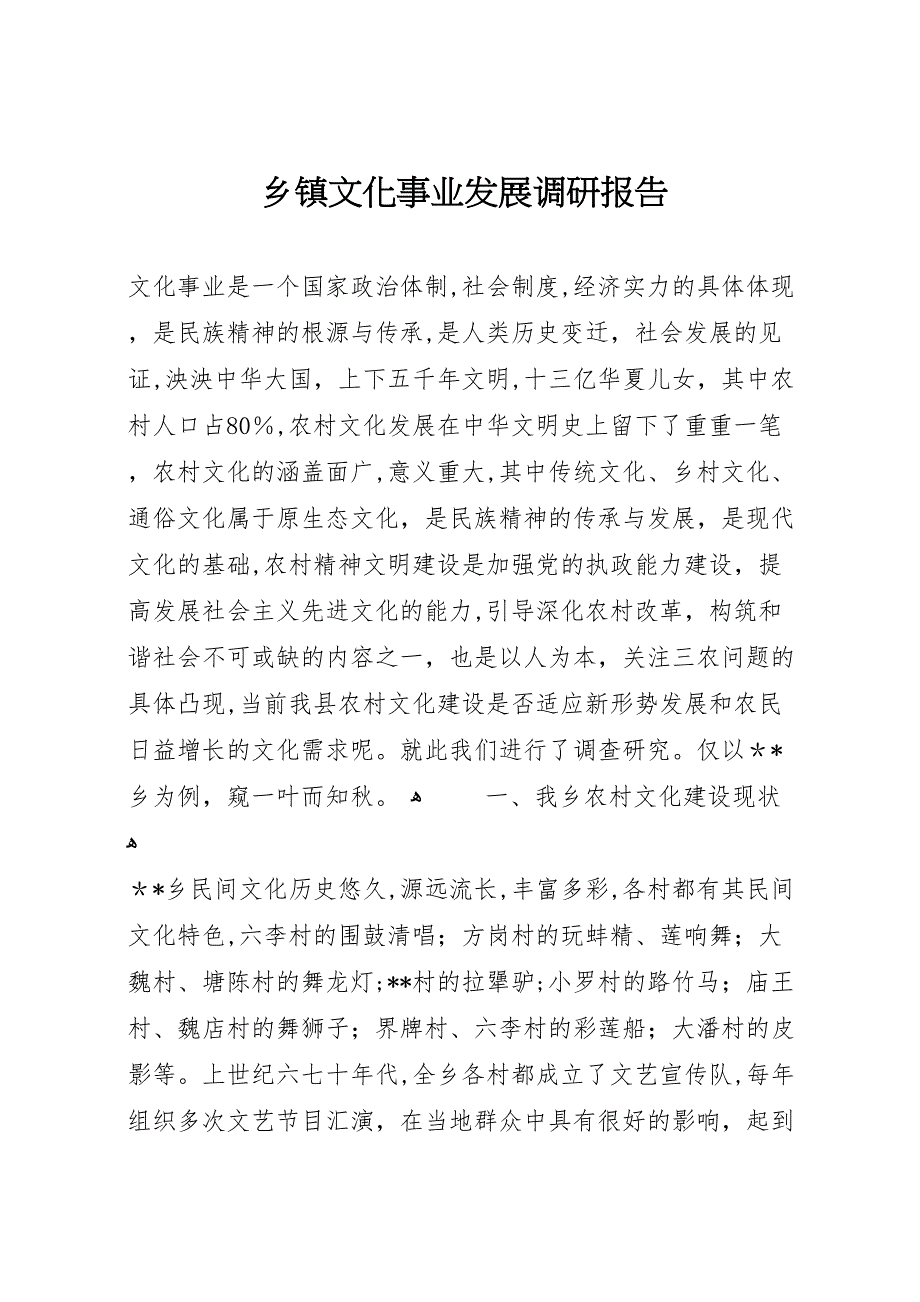 乡镇文化事业发展调研报告
文化事业是一个国家政治体制,社会制度,经济实力的具体体现
，是民族精神的根源与传承,是人类历史变迁，社会发展的见
证,泱泱中华大国，上下五千年文明,十三亿华夏儿女，其中农
村人口占80％,农村文化发展在中华文明史上留下了重重一笔
，农村文化的涵盖面广,意义重大,其中传统文化、乡村文化、
通俗文化属于原生态文化，是民族精神的传承与发展，是现代
文化的基础,农村精神文明建设是加强党的执政能力建设，提
高发展社会主义先进文化的能力,引导深化农村改革，构筑和
谐社会不可或缺的内容之一，也是以人为本，关注三农问题的
具体凸现,当前我县农村文化建设是否适应新形势发展和农民
日益增长的文化需求呢。就此我们进行了调查研究。仅以＊*
乡为例，窥一叶而知秋。 ﻫ 一、我乡农村文化建设现状
ﻫ
＊*乡民间文化历史悠久,源远流长,丰富多彩,各村都有其民间
文化特色,六李村的围鼓清唱；方岗村的玩蚌精、莲响舞；大
魏村、塘陈村的舞龙灯;**村的拉犟驴;小罗村的路竹马；庙王
村、魏店村的舞狮子；界牌村、六李村的彩莲船；大潘村的皮
影等。上世纪六七十年代,全乡各村都成立了文艺宣传队,每年
组织多次文艺节目汇演，在当地群众中具有很好的影响，起到